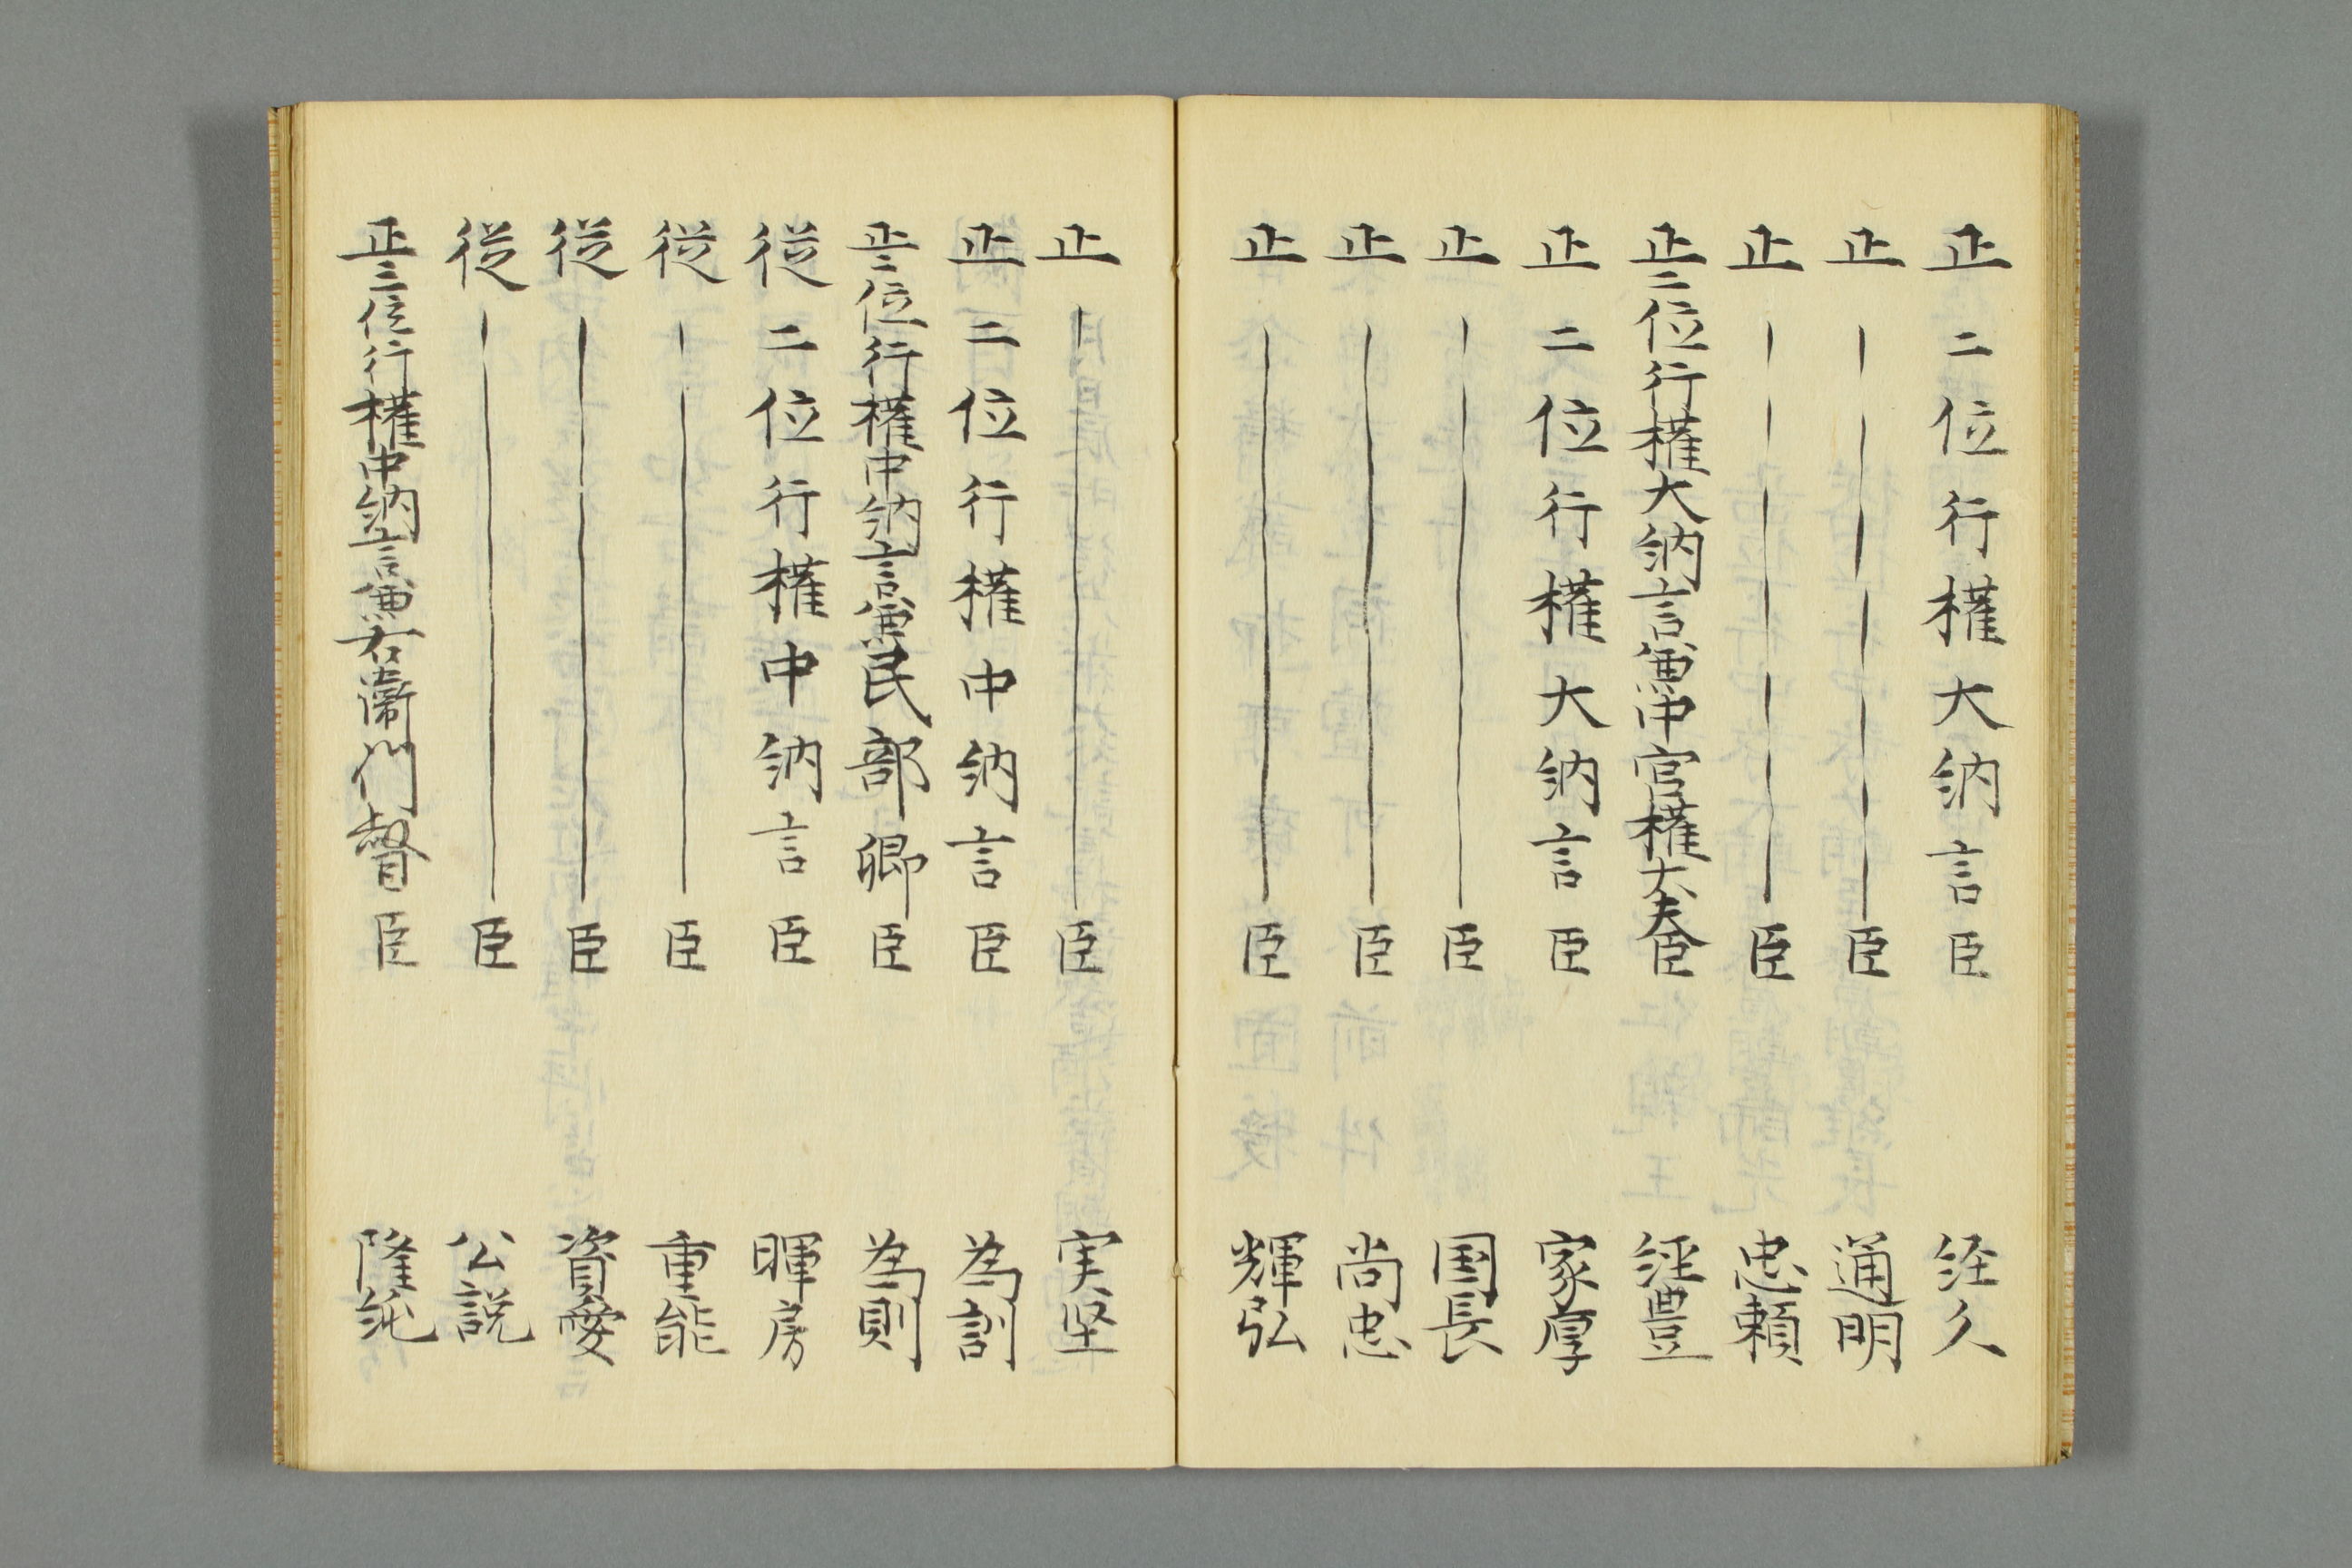 正二位行権大納言臣 経久
正――――――臣 通明
正――――――臣 忠頼
正二位行権大納言兼中宮権大夫臣 経豊
正二位行権大納言臣 家厚
正――――――臣 国長
正――――――臣 尚忠
正――――――臣 輝弘
正――――――臣 実堅
正二位行権中納言臣 為訓
正二位行権中納言兼民部卿臣 為則
従二位行権中納言臣 暉房
従――――――臣 重能
従――――――臣 資愛
従――――――臣 公説
正三位行権中納言兼右衛門督臣 隆純